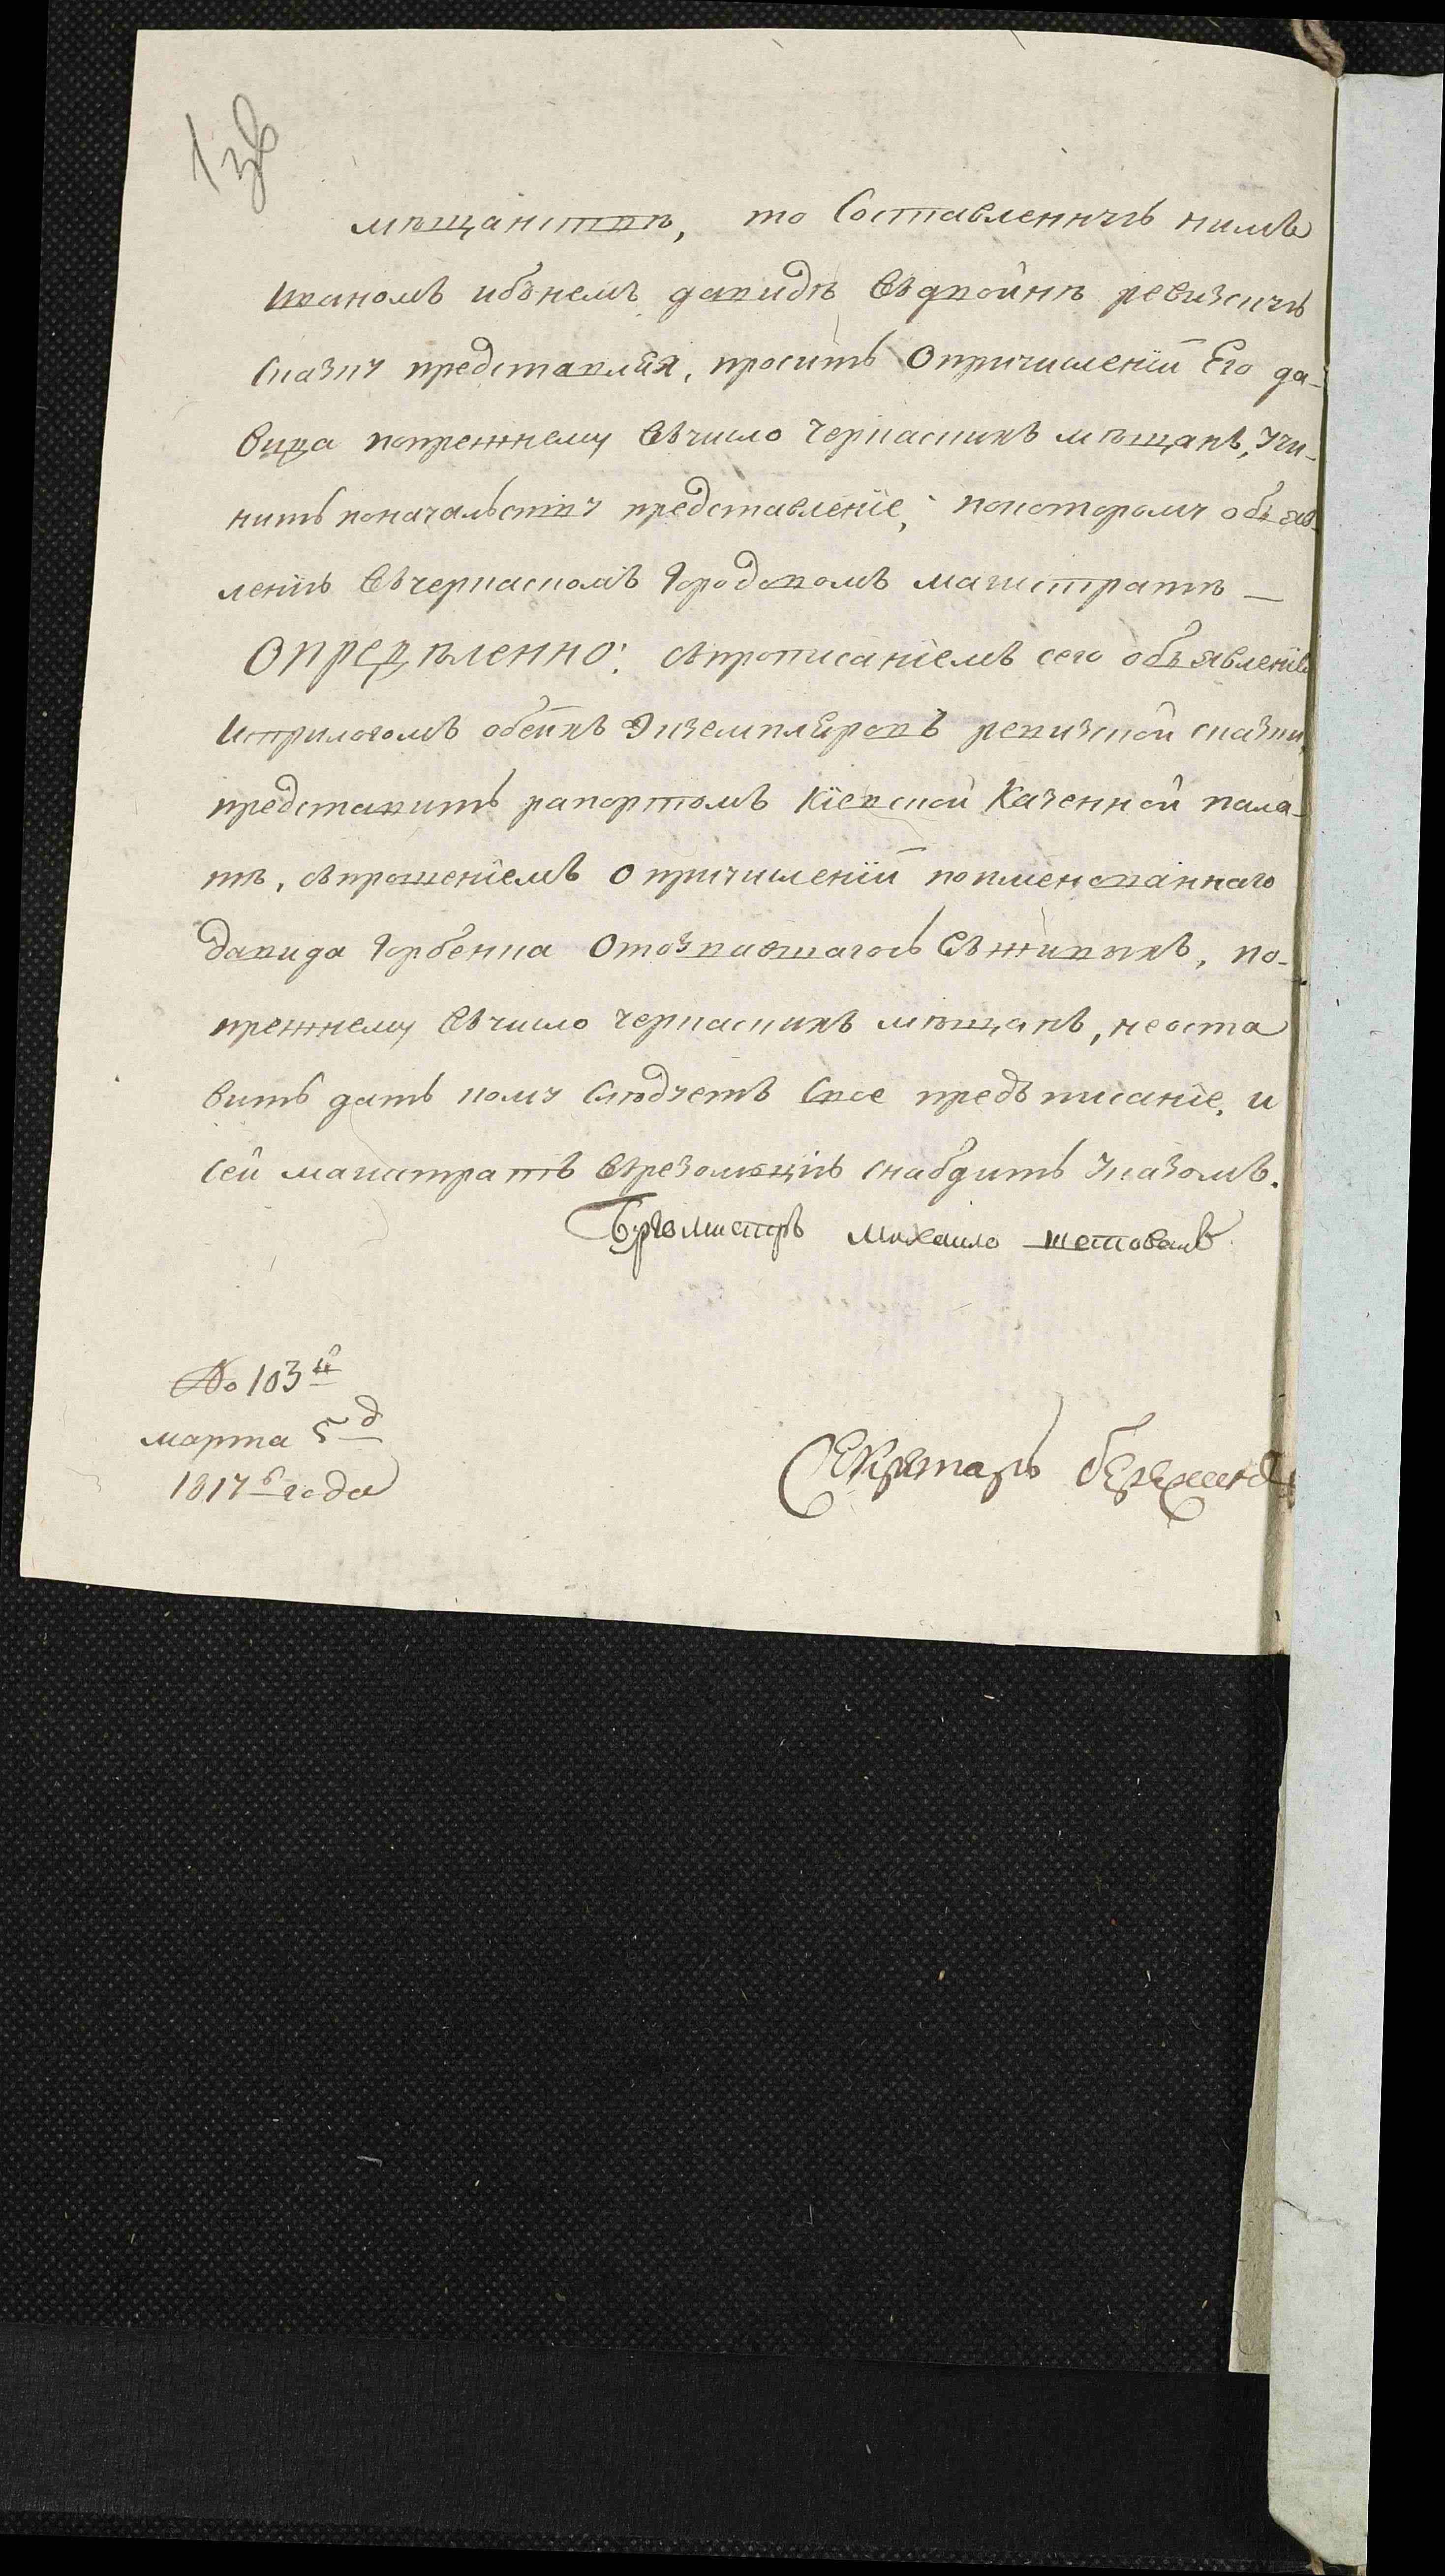 1зв
мѣщанствѣ, то Составленную нимъ
Иваномъ иобънемъ давидѣ Въдвойнѣ ревизскую
Сказку представляя, проситъ Опричисленіи Его да-
вида попрежнему Въчисло Черкаскихъ мѣщанъ, Учи-
нить поначальству представленіе, покоторому объяв-
ленію Въчеркаскомъ Городовомъ магистратѣ —
Опредѣленно: съпрописаніемъ сего объявленія
Исприлогомъ обеихъ Экземпляровъ ревизской сказки,
представить рапортомъ Кіевской Казенной пала-
тѣ, съпрошеніемъ Опричисленіи поименованнаго
Давида Горбенка Отозвавшагось Въживыхъ, по-
прежнему Въчисло Черкаскихъ мѣщанъ, неоста
вить дать кому Слѣдуетъ Свое предъписаніе, и
Сей магистратъ Върезолюцію снабдить Указомъ.
Бургомистръ Михаило
№ 103й
марта 5д
1817 года
Секретарь